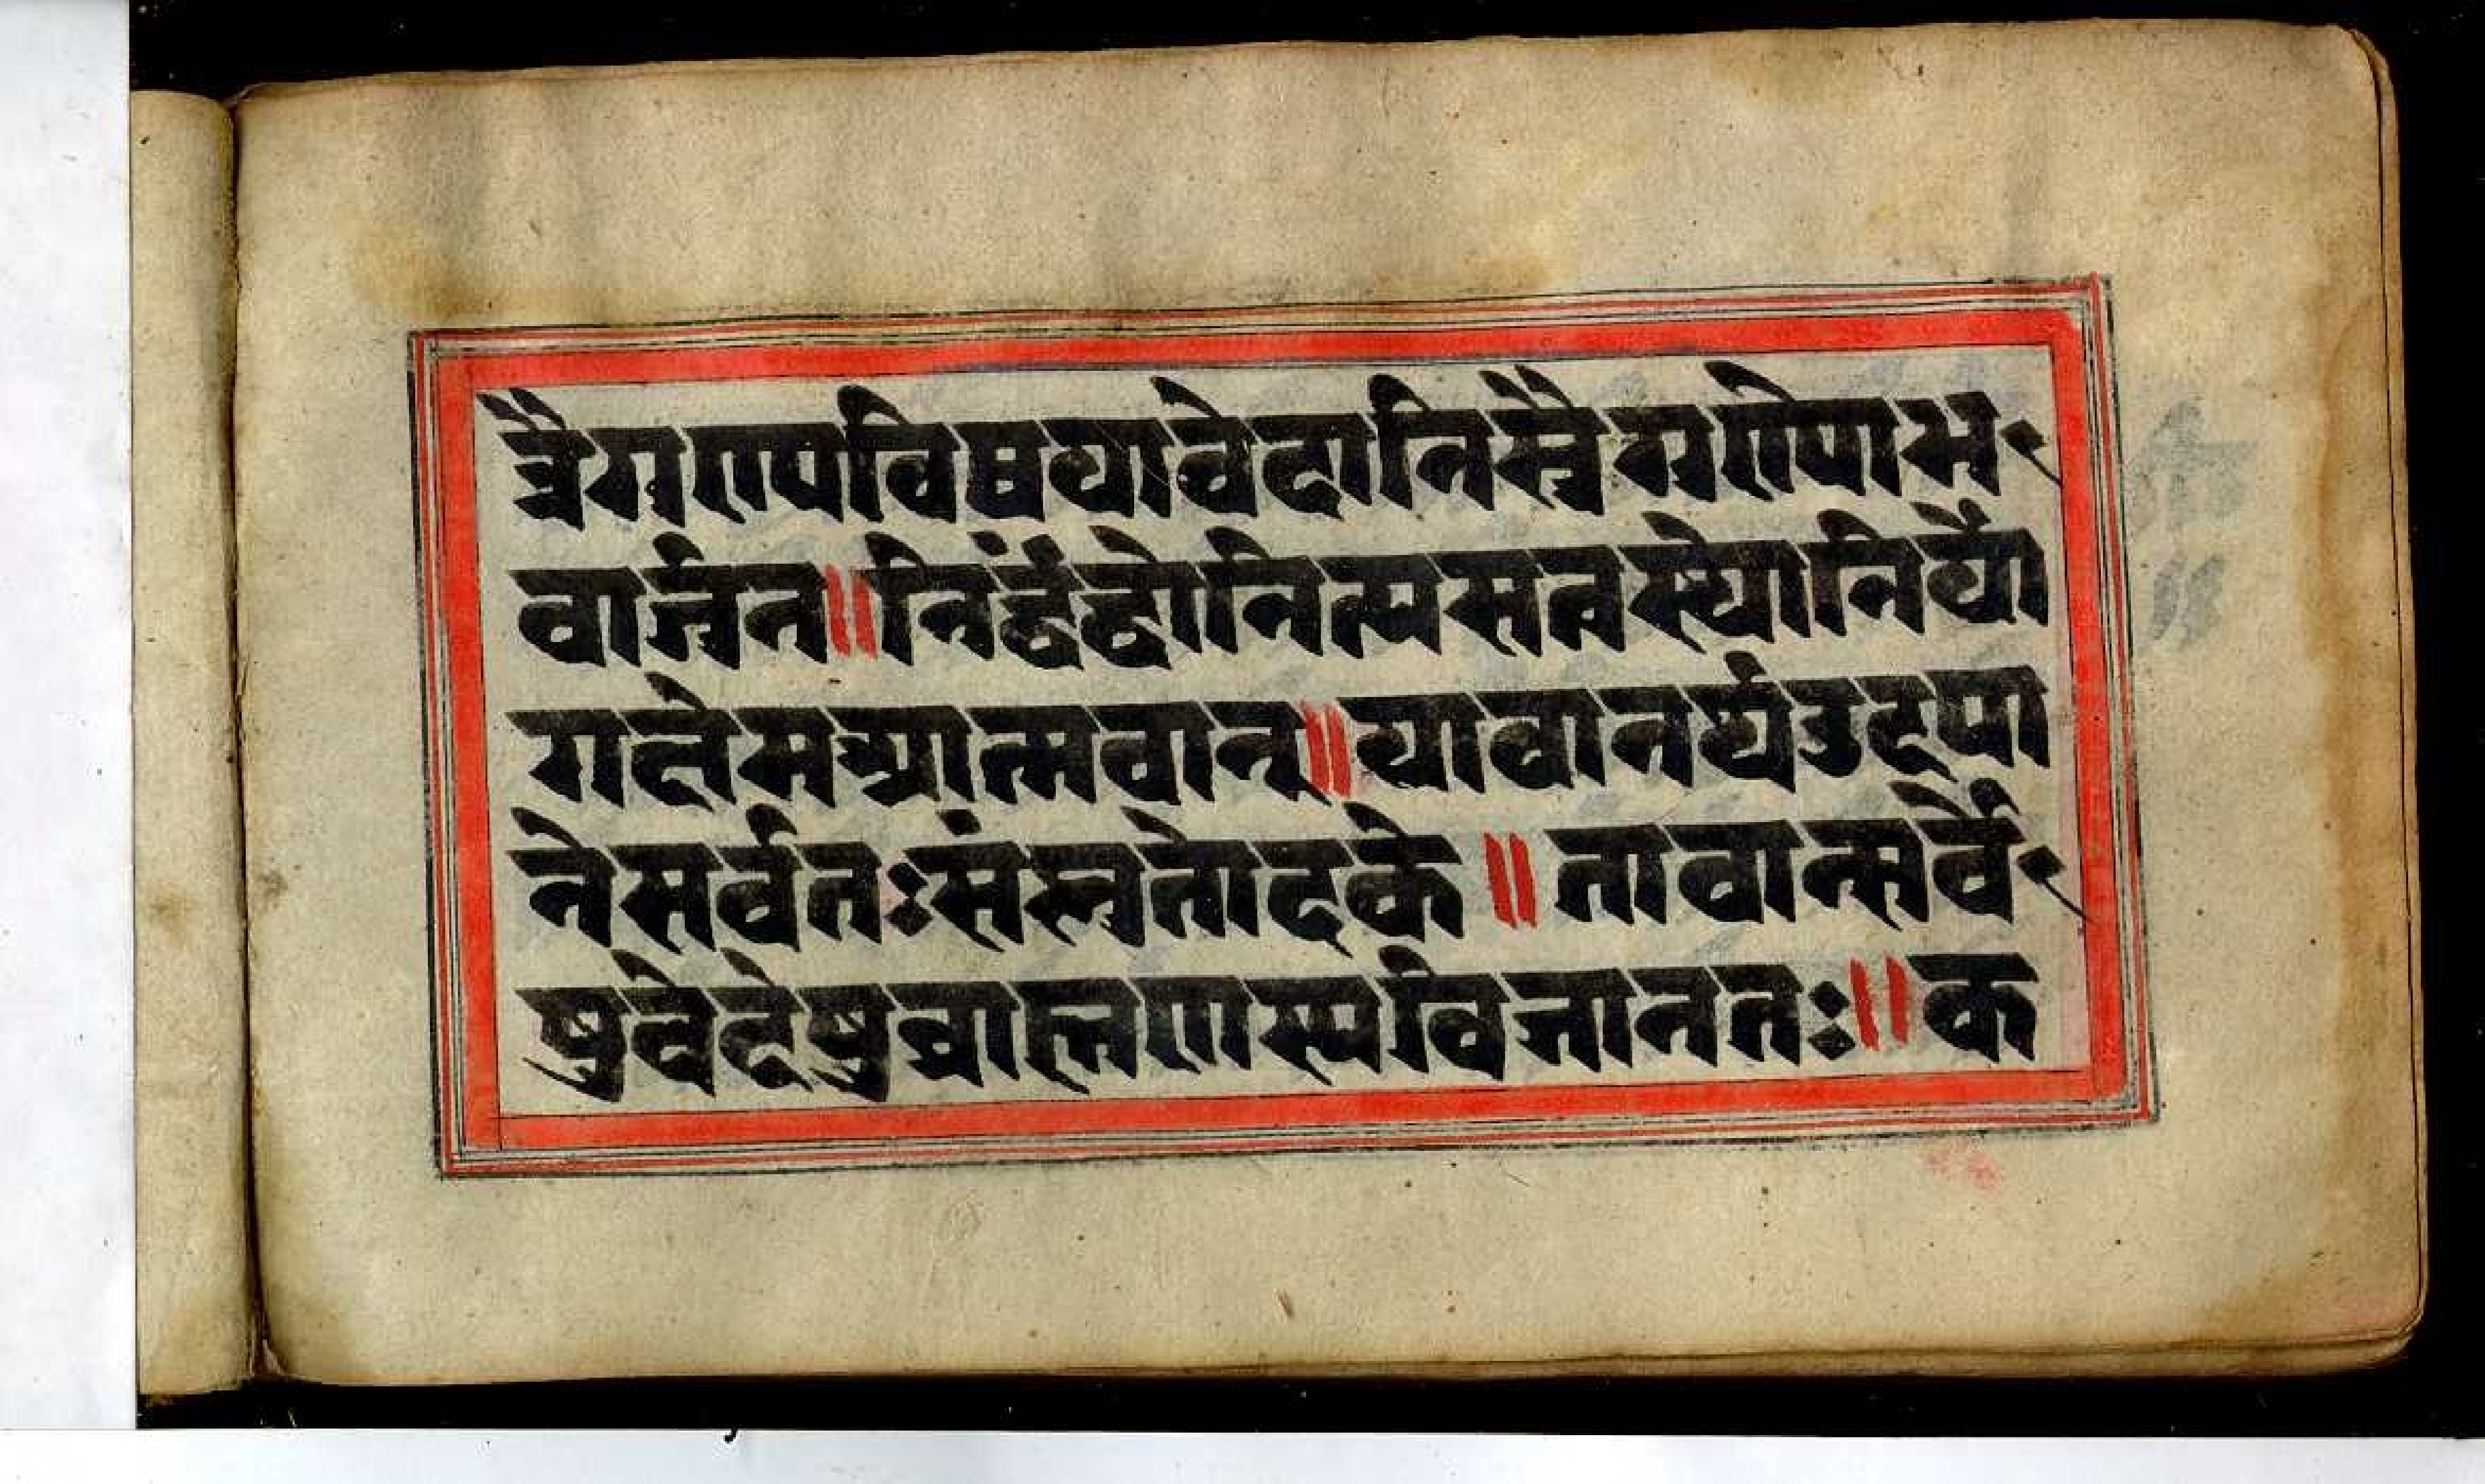 त्रैगुण्यविषयावेदानिस्त्रैगुण्योभ
वार्जुन॥निर्द्वंद्वोनित्यसत्वस्थोनिर्यो
गक्षेमआत्मवान्॥यावानर्थउदपा
नेसर्वतःसंप्लुतोदके॥तावान्सर्वे
षुवेदेषुब्राह्मणस्यविजानतः॥क